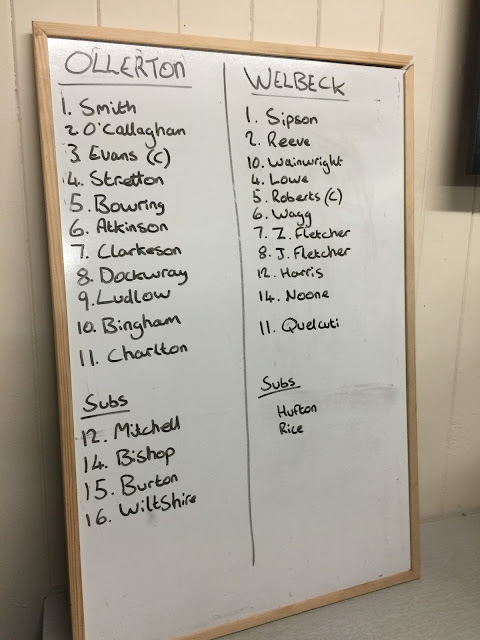 OLLERTON
1. Smith
2 O'Callaghan
3. Evans (C)
4. Stretton
5. Bowring
6. Atkinson
7. Clarkeson
8. Dockwray
9. Ludlow
10. Bingham
11. Charlton
Subs
12. Mitchell
14. Bishop
15. Burton
16. Wiltshire
WELBECK
1. Sipson
2. Reeve
10. Wainwright
4. Lowe
5. Roberts (C)
6. Wagg
7. Z. Fletcher
8. J. Fletcher
12. Harris
14. Noone
11. Quelcuti
Subs
Hufton
Rice